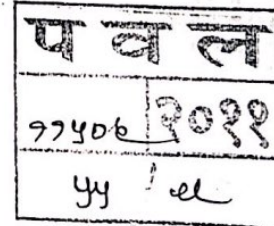 प व ल
११५०६ २०११
५५